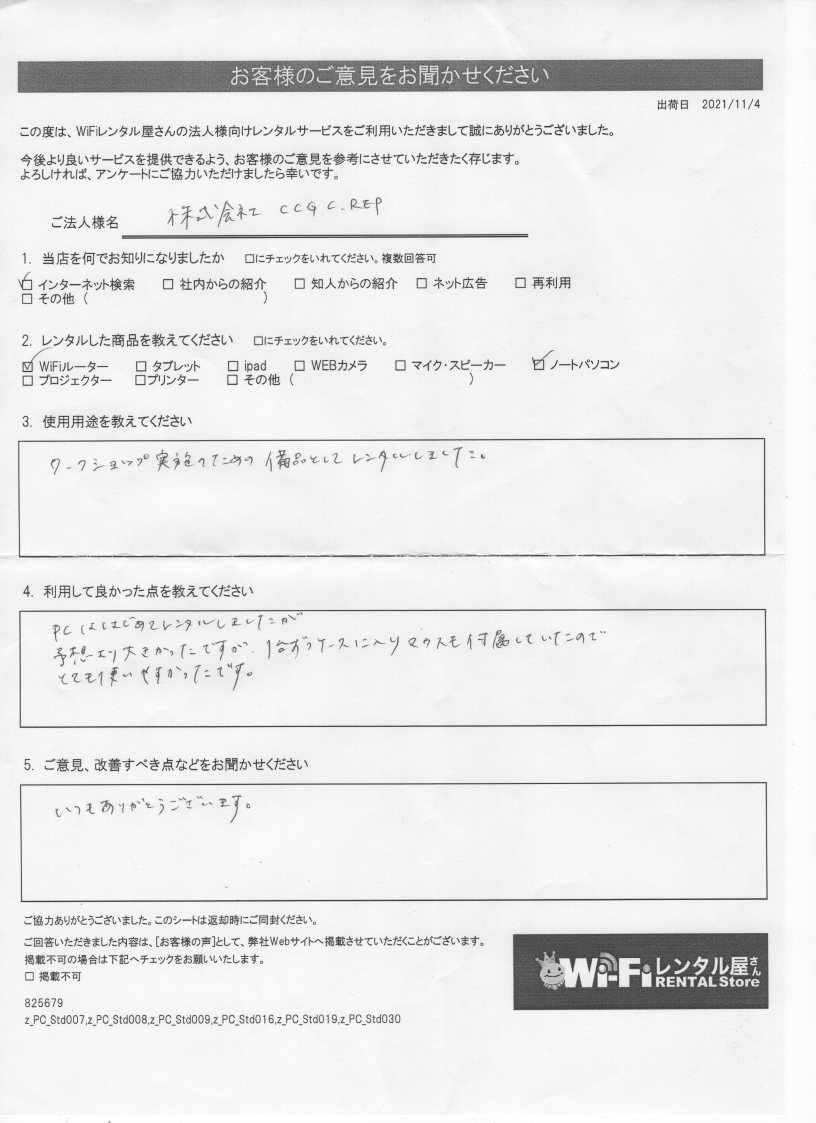 お客様のご意見をお聞かせください
出荷日 2021/11/4
この度は、WiFiレンタル屋さんの法人様向けレンタルサービスをご利用いただきまして誠にありがとうございました。
今後より良いサービスを提供できるよう、お客様のご意見を参考にさせていただきたく存じます。
よろしければ、アンケートにご協力いただけましたら幸いです。
ご法人様名 株式会社 CCG C.REP
1. 当店を何でお知りになりましたか □にチェックをいれてください。複数回答可
☑ インターネット検索 □ 社内からの紹介 □ 知人からの紹介 □ ネット広告 □ 再利用
□ その他 ( )
2. レンタルした商品を教えてください □にチェックをいれてください。
☑ WiFiルーター □ タブレット □ ipad □ WEBカメラ □ マイク・スピーカー ☑ ノートパソコン
□ プロジェクター □プリンター □ その他 ( )
3. 使用用途を教えてください
ワークショップ実施のための備品としてレンタルしました。
4. 利用して良かった点を教えてください
PCははじめてレンタルしましたが
予想より大きかったですが、1台ずつケースに入りマウスも付属していたので
とても使いやすかったです。
5. ご意見、改善すべき点などをお聞かせください
いつもありがとうございます。
ご協力ありがとうございました。このシートは返却時にご同封ください。
ご回答いただきました内容は、[お客様の声]として、弊社Webサイトへ掲載させていただくことがございます。
掲載不可の場合は下記へチェックをお願いいたします。
□ 掲載不可
Wi-Fiレンタル屋さん
RENTAL Store
825679
z_PC_Std007,z_PC_Std008,z_PC_Std009,z_PC_Std016,z_PC_Std019,z_PC_Std030